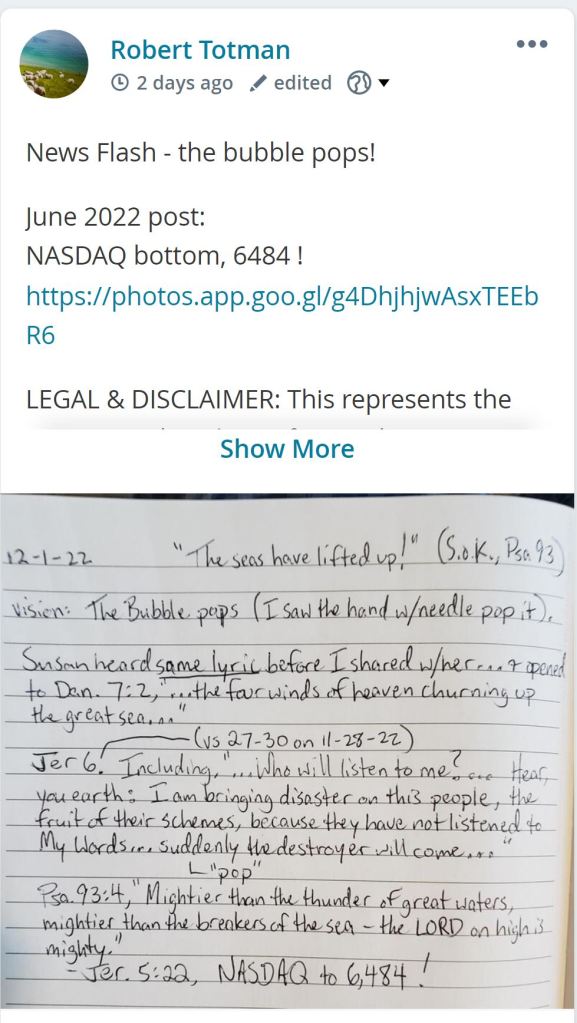 Robert Totman
2 days ago edited
News Flash - the bubble pops!
June 2022 post:
NASDAQ bottom, 6484 !
https://photos.app.goo.gl/g4DhjhjwAsxTEEb
R6
LEGAL & DISCLAIMER: This represents the
Show More
12-1-22 "The seas have lifted up!" (S.o.K., Psa 93)
vision: The Bubble pops (I saw the hand w/needle pop it).
Susan heard same lyric before I shared w/her.... & opened
to Dan. 7:2, "...the four winds of heaven churning up
the great sea...."
(vs 27-30 on 11-28-22)
Jer 6. Including, "...Who will listen to me? ... Hear,
you earth: I am bringing disaster on this people, the
fruit of their schemes, because they have not listened to
My Words... suddenly the destroyer will come...."
"pop"
Psa. 93:4, "Mightier than the thunder of great waters,
mightier than the breakers of the sea - the LORD on high is
mighty."
- Jer. 5:22, NASDAQ to 6,484!